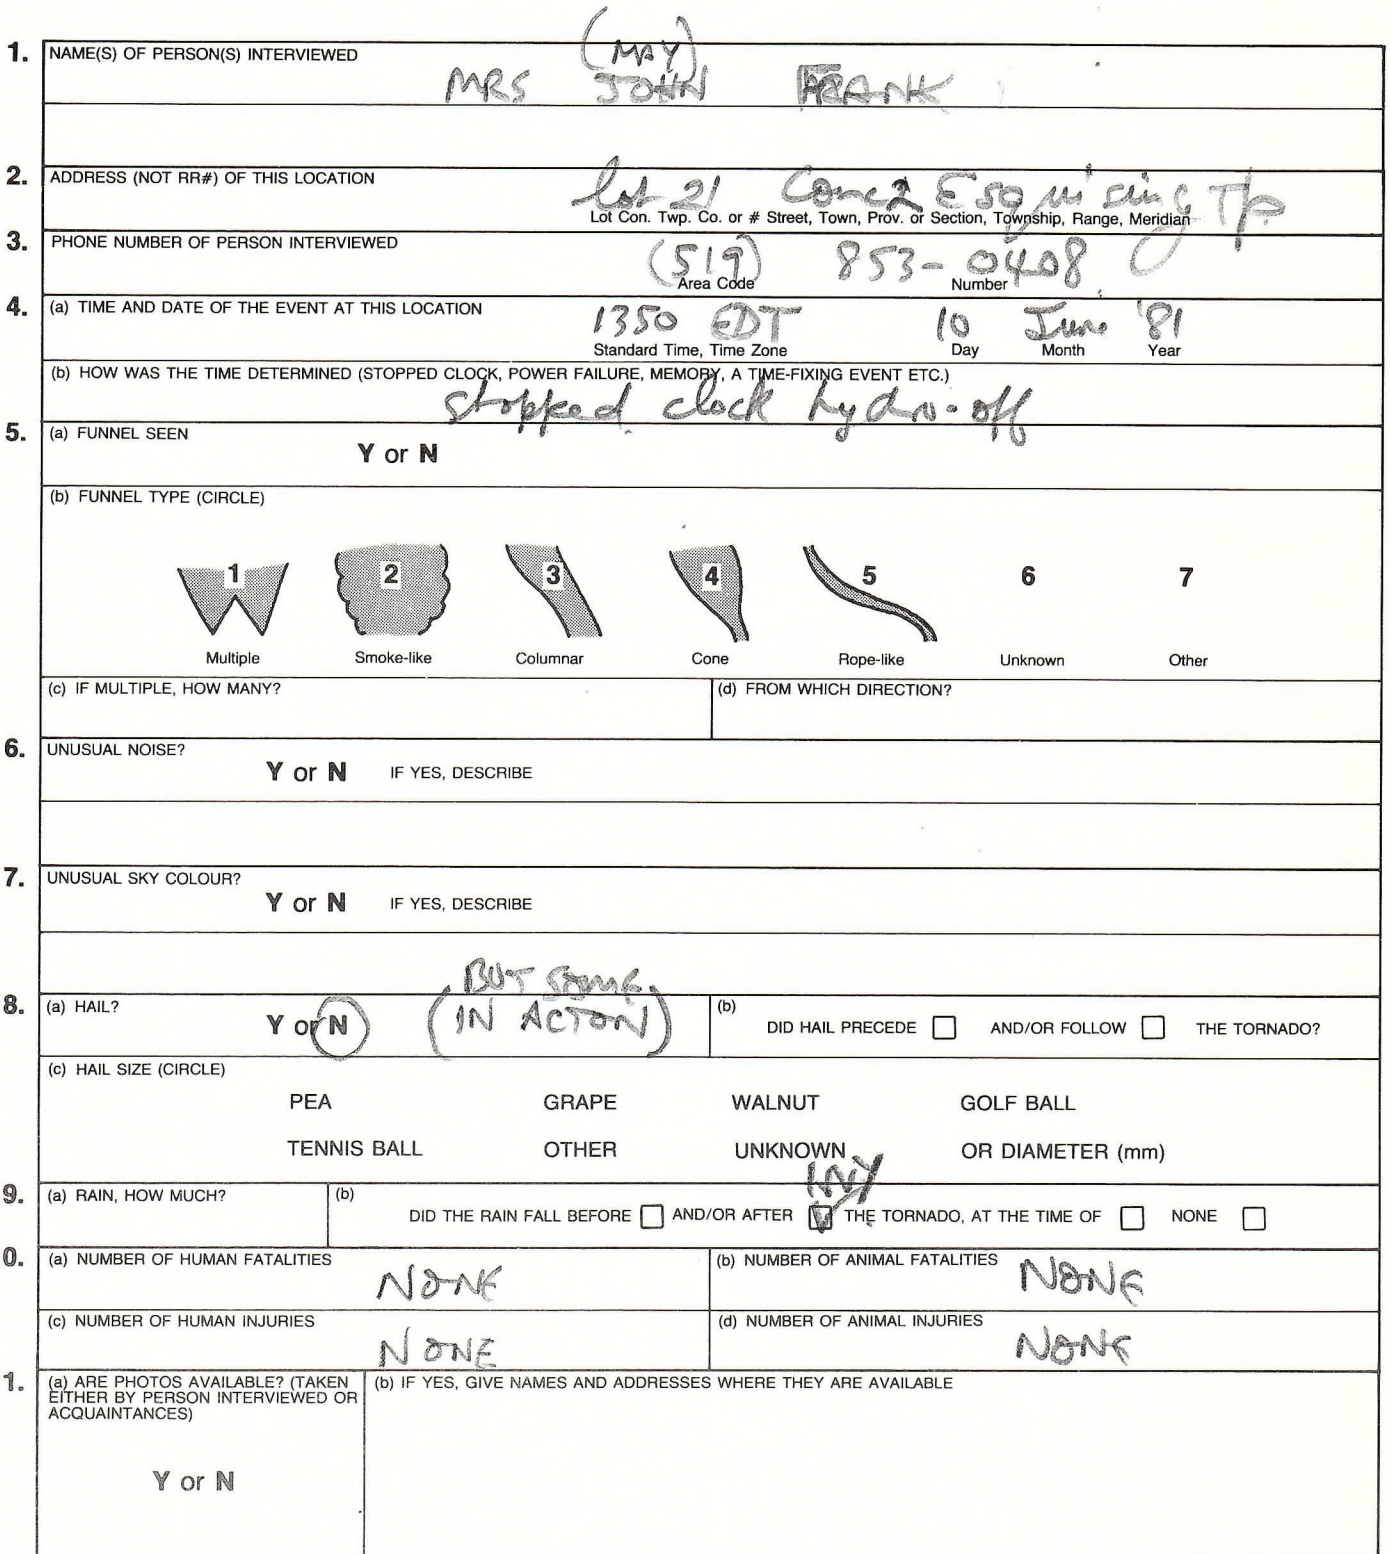 (MAY)
1. NAME(S) OF PERSON(S) INTERVIEWED
MRS JOHN FRANK
2. ADDRESS (NOT RR#) OF THIS LOCATION lot 21 Conc 2 Esquising Tp
Lot Con. Twp. Co. or # Street, Town, Prov. or Section, Township, Range, Meridian
3. PHONE NUMBER OF PERSON INTERVIEWED (519) 853-0408
Area Code Number
4. (a) TIME AND DATE OF THE EVENT AT THIS LOCATION 1350 EDT 10 June '81
Standard Time, Time Zone Day Month Year
(b) HOW WAS THE TIME DETERMINED (STOPPED CLOCK, POWER FAILURE, MEMORY, A TIME-FIXING EVENT ETC.)
stopped clock hydro-off
5. (a) FUNNEL SEEN
Y or N
(b) FUNNEL TYPE (CIRCLE)
1 2 3 4 5 6 7
Multiple Smoke-like Columnar Cone Rope-like Unknown Other
(c) IF MULTIPLE, HOW MANY? (d) FROM WHICH DIRECTION?
6. UNUSUAL NOISE?
Y or N IF YES, DESCRIBE
7. UNUSUAL SKY COLOUR?
Y or N IF YES, DESCRIBE
BUT SOME
8. (a) HAIL? Y or N (IN ACTON) (b) DID HAIL PRECEDE AND/OR FOLLOW THE TORNADO?
(c) HAIL SIZE (CIRCLE)
PEA GRAPE WALNUT GOLF BALL
TENNIS BALL OTHER UNKNOWN OR DIAMETER (mm)
9. (a) RAIN, HOW MUCH? (b)
DID THE RAIN FALL BEFORE AND/OR AFTER THE TORNADO, AT THE TIME OF NONE
0. (a) NUMBER OF HUMAN FATALITIES NONE (b) NUMBER OF ANIMAL FATALITIES NONE
(c) NUMBER OF HUMAN INJURIES NONE (d) NUMBER OF ANIMAL INJURIES NONE
1. (a) ARE PHOTOS AVAILABLE? (TAKEN (b) IF YES, GIVE NAMES AND ADDRESSES WHERE THEY ARE AVAILABLE
EITHER BY PERSON INTERVIEWED OR
ACQUAINTANCES)
Y or N